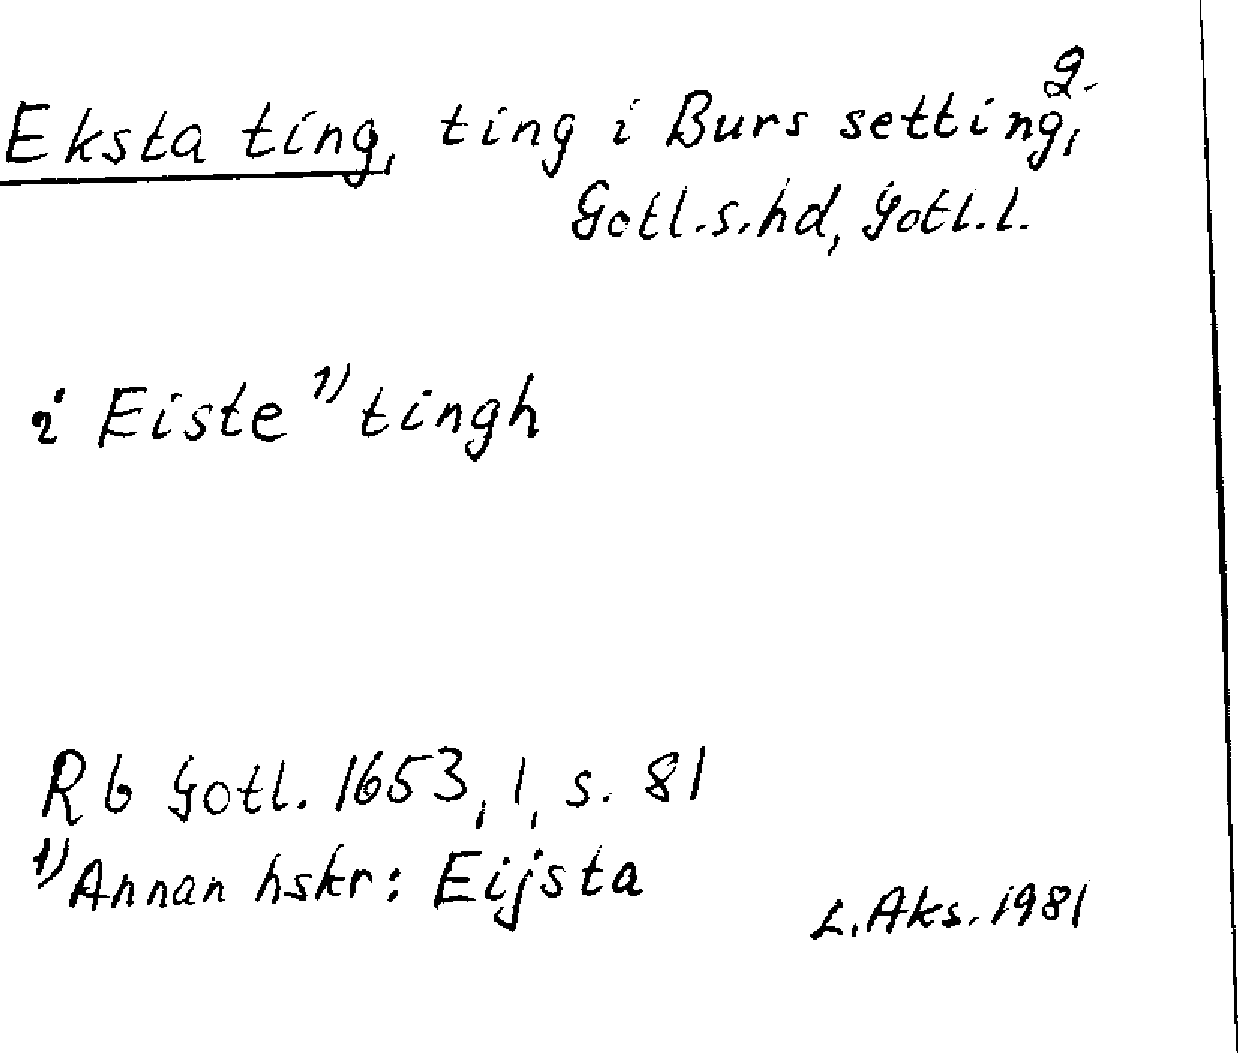 2.
Eksta ting, ting i Burs setting,
Gotl.s.hd, Gotl.l.
i Eiste ¹⁾ tingh
Rb Gotl. 1653, 1, s. 81
¹⁾ Annan hskr: Eijsta
L. Aks. 1981